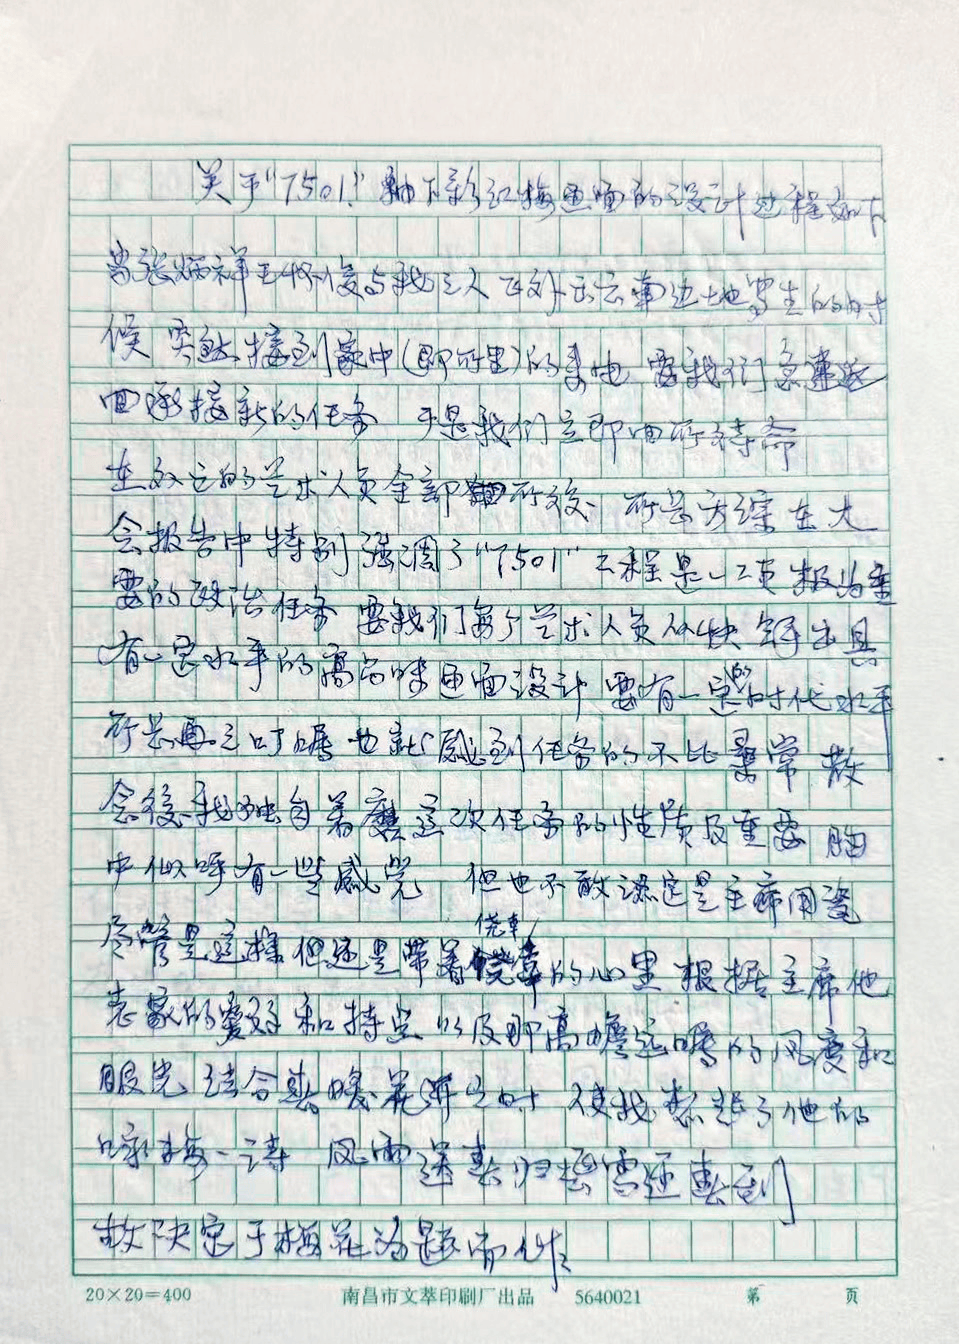 关于"7501"釉下彩红梅画面的设计过程如下
当张炳祥 王怀俊与我三人正外出云南边地写生的时
候 突然接到家中(即所里)的来电 要我们急速返
回承接新的任务 于是我们立即回所待命
在外之的艺术人员全部回所后 所长方综在大
会报告中特别强调了"7501"工程是一项极为重
要的政治任务 要我们每个艺术人员尽快拿出具
有一定水平的高品味画面设计 要有一定的时代水平
所长再三叮嘱 也就感到任务的不比寻常 散
会后 我独自着磨这次任务的性质及重要 胸
中似呼有一些感觉 但也不敢误定是主席用瓷
尽管是这样 但还是带着侥幸的心里 根据主席他
老家的爱好和特点 以及那高瞻远瞩的风度和
眼光 结合春暖花开之时 使我想起了他的
咏梅一诗 风雨送春归 飞雪迎春到
故决定于梅花为题而作
20×20=400 南昌市文萃印刷厂出品 5640021 第 页